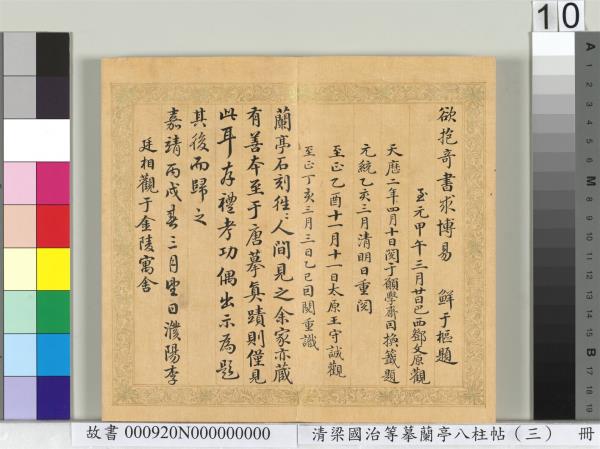 欲抱奇書求博易　鮮于樞題
至元甲午三月廿日巴西鄧文原觀
天曆二年四月十日閱于顓學齋因換籤題
元統乙亥三月清明日重閱
至正乙酉十一月十一日太原王守誠觀
至正丁亥三月三日乙巳因閱重識
蘭亭石刻往〻人間見之余家亦藏
有善本至于唐摹真蹟則僅見
此耳存禮考功偶出示為題
其後而歸之
嘉靖丙戌春三月望日濮陽李
廷相觀于金陵寓舍
10
A
1
2
3
4
5
6
M
8
9
10
11
12
13
14
15
B
17
18
19
故書 000920N000000000
清梁國治等摹蘭亭八柱帖（三）　冊